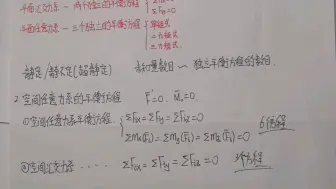 平面汇交力系 — 两个独立的平衡方程
ΣFy=0
平面任意力系 — 三个独立的平衡方程 基本式
二力矩式
三力矩式
静定/静不定(超静定) 未知量数目 ~ 独立平衡方程的数目.
2. 空间任意力系的平衡方程 F'=0. M₀=0.
①空间任意力系平衡方程. ΣFx=ΣFy=ΣFz=0
ΣMx(F)=ΣMy(F)=ΣMz(F)=0 6个方程
②空间汇交力系 ...... ΣFx=ΣFy=ΣFz=0 3个方程